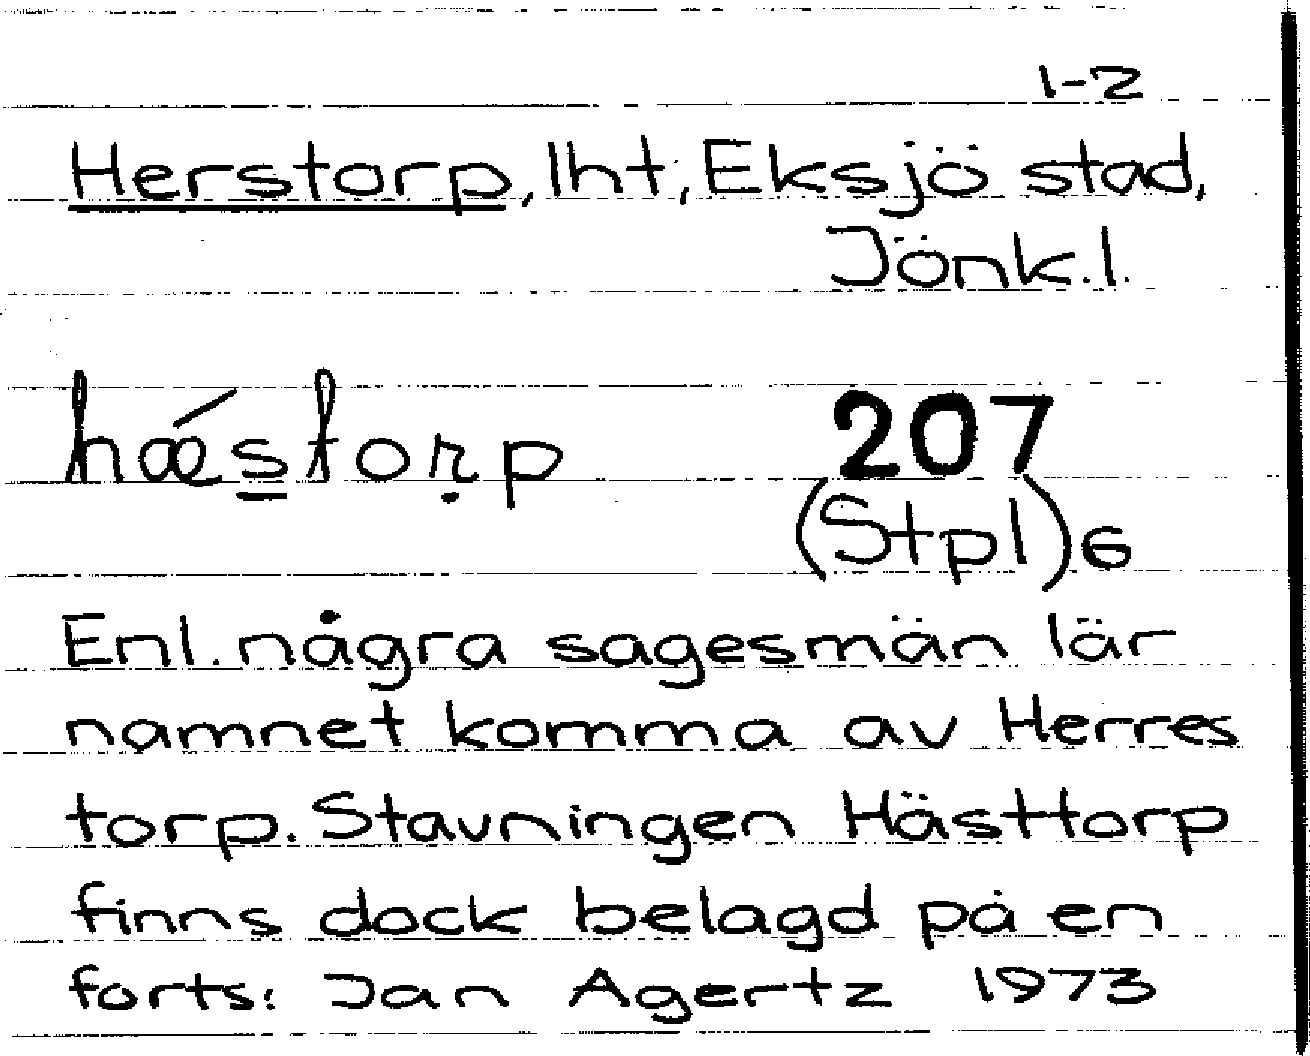 1-2
Herstorp, lht, Eksjö stad,
Jönk.l.
hǽs̲torṛp
207
(Stpl)6
Enl. några sagesmän lär
namnet komma av Herres
torp. Stavningen Hästtorp
finns dock belagd på en
forts: Jan Agertz 1973